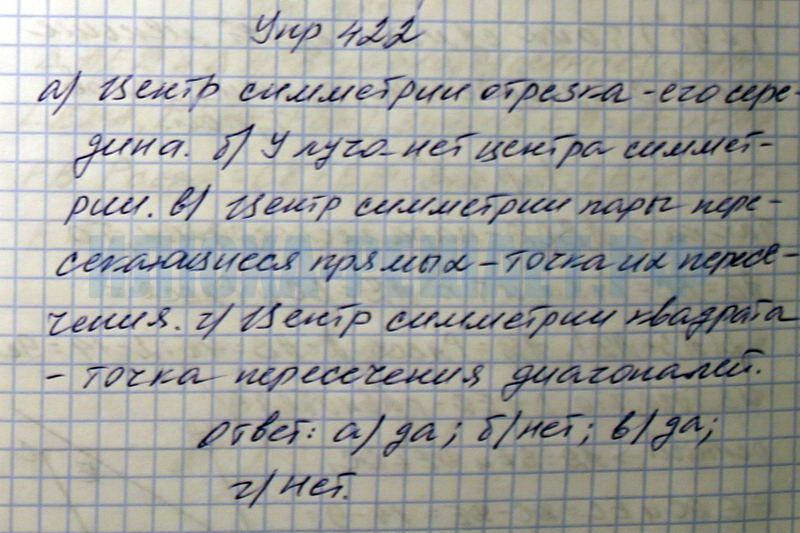 Упр 422
а) Центр симметрии отрезка - его сере-
дина. б) У луча - нет центра симмет-
рии. в) Центр симметрии пары пере-
секающиеся прямых - точка их пересе-
чения. г) Центр симметрии квадрата
- точка пересечения диагоналей.
Ответ: а) да; б) нет; в) да;
г) нет.